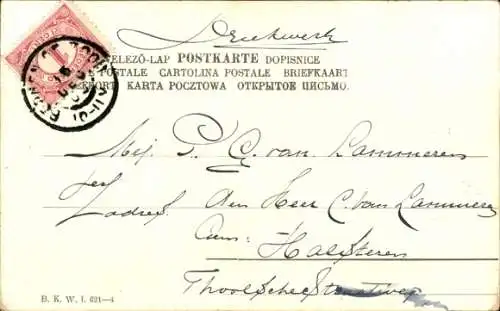 Drukwerk
ELEZŐ-LAP POSTKARTE DOPISNICE
E POSTALE CARTOLINA POSTALE BRIEFKAART
EFKORT KARTA POCZTOWA ОТКРЫТОЕ ПИСЬМО.
BERGEN OP ZOOM
Mej. P. C. van Lammeren
per
adres. den Heer C. van Lammeren
Halsteren
Thoolschestraatweg
B. K. W. I. 621—4